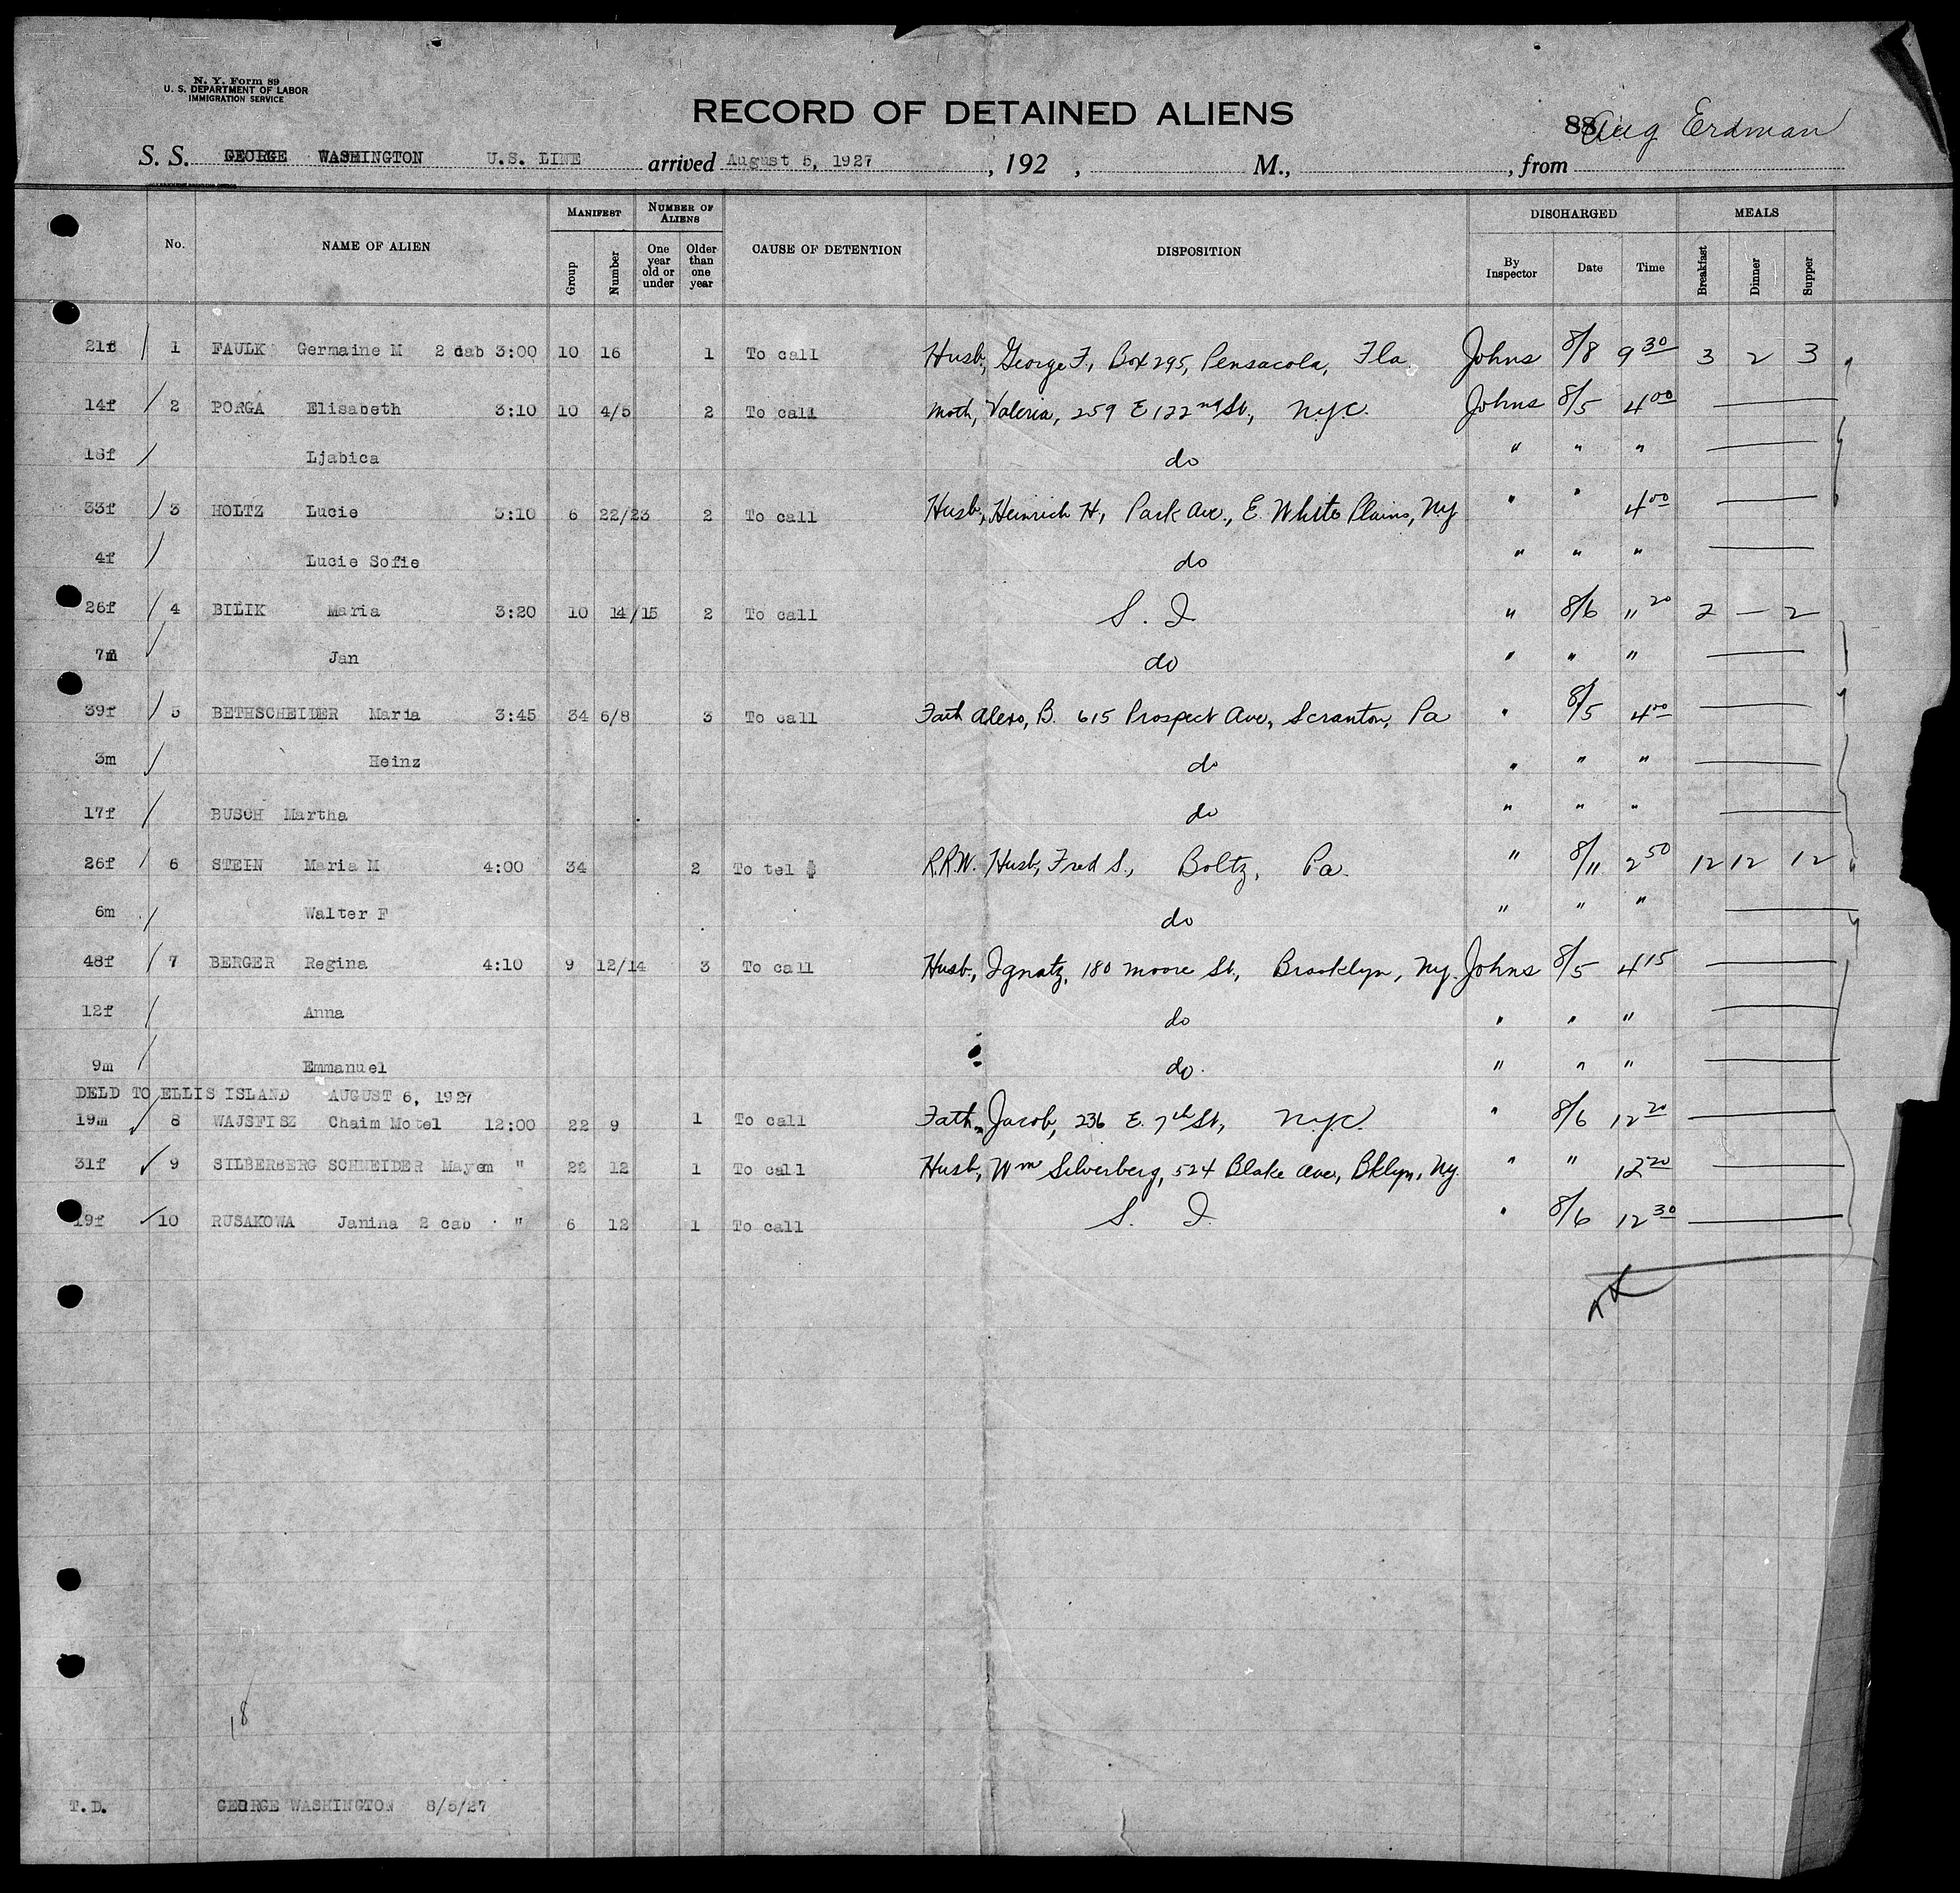 N. Y. Form 89
U. S. DEPARTMENT OF LABOR
IMMIGRATION SERVICE
RECORD OF DETAINED ALIENS
88 Aug Erdman
S. S. GEORGE WASHINGTON U.S. LINE arrived August 5, 1927, 192 , M., , from
No. NAME OF ALIEN MANIFEST Group Number NUMBER OF ALIENS One year old or under Older than one year CAUSE OF DETENTION DISPOSITION DISCHARGED By Inspector Date Time MEALS Breakfast Dinner Supper
21f / 1 FAULK Germaine M 2 cab 3:00 10 16 1 To call Husb, George F, Box 295, Pensacola, Fla. Johns 8/8 9 30 3 2 3
14f / 2 PORGA Elisabeth 3:10 10 4/5 2 To call Moth, Valeria, 259 E 122nd St, N.Y.C. Johns 8/5 4 00 —
18f / Ljabica do " " " —
33f / 3 HOLTZ Lucie 3:10 6 22/23 2 To call Husb, Heinrich H, Park Ave., E. White Plains, Ny " " 4 00 —
4f / Lucie Sofie do " " " —
26f / 4 BILIK Maria 3:20 10 14/15 2 To call S. I " 8/6 " 20 2 — 2
7m / Jan do " " " —
39f / 5 BETHSCHEIDER Maria 3:45 34 6/8 3 To call Fath B. 615 Prospect Ave, Scranton, Pa " 8/5 4 00 —
3m / Heinz do " " " —
17f / BUSCH Martha do " " " —
26f / 6 STEIN Maria M 4:00 34 2 To tel $ R.R.W. Husb, Fred S., Boltz, Pa. " 8/11 2 50 12 12 12
6m / Walter F do " " " —
48f / 7 BERGER Regina 4:10 9 12/14 3 To call Husb, Ignatz, 180 Moore St, Brooklyn, Ny. Johns 8/5 4 15 —
12f / Anna do " " " —
9m / Emmanuel do. " " " —
DELD TO ELLIS ISLAND AUGUST 6, 1927
19m / 8 WAJSFISZ Chaim Motel 12:00 22 9 1 To call Fath, Jacob, 236 E. 7th St, N.Y.C. " 8/6 12 20 —
31f / 9 SILBERBERG SCHNEIDER Mayem " 22 12 1 To call Husb, Wm Silverberg, 524 Blake Ave, Bklyn, Ny. " " 12 20 —
19f / 10 RUSAKOWA Janina 2 cab " 6 12 1 To call S. I. " 8/6 12 30 —
18
T.D. GEORGE WASHINGTON 8/5/27